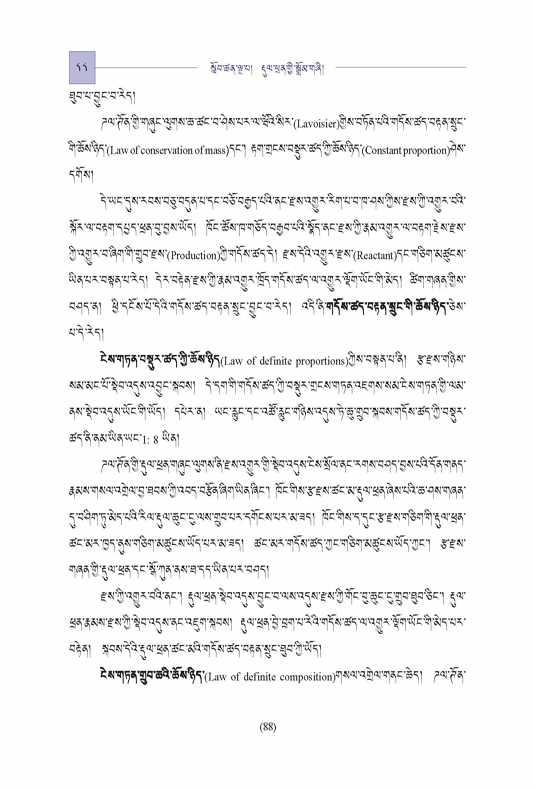 ༡༡ སློབ་ཚན་ལྔ་པ། རྡུལ་ཕྲན་གྱི་སྒྲོམ་གཞི།
ཐུབ་པ་བྱུང་བ་རེད།
ཌལ་ཊོན་གྱི་གཞུང་ལུགས་ཆ་ཚང་བ་ཤེས་པར་ལ་ཝོའི་སིར་(Lavoisier)གྱིས་བཏོན་པའི་གདོས་ཚད་བརྟན་སྲུང་
གི་ཆོས་ཉིད་(Law of conservation of mass)དང་། རྟག་གྲངས་བསྡུར་ཚད་ཀྱི་ཆོས་ཉིད་(Constant proportion)ཤེས་
དགོས།
དེ་ཡང་དུས་རབས་བཅུ་བདུན་པ་དང་བཅོ་བརྒྱད་པའི་ནང་རྫས་འགྱུར་རིག་པ་བ་ཁ་ཤས་ཀྱིས་རྫས་ཀྱི་འགྱུར་བའི་
སྐོར་ལ་བརྟག་དཔྱད་ཕྲན་བུ་བྱས་ཡོད། ཁོང་ཚོས་ཁ་གཅོད་བརྒྱབ་པའི་སྣོད་ནང་རྫས་ཀྱི་རྣམ་འགྱུར་ལ་བརྟག་རྗེས་རྫས་
ཀྱི་འགྱུར་བ་ཞིག་གི་གྲུབ་རྫས་(Production)ཀྱི་གདོས་ཚད་དེ། རྫས་དེའི་འགྱུར་རྫས་(Reactant)དང་གཅིག་མཚུངས་
ཡིན་པར་བསྟན་པ་རེད། དེར་བརྟེན་རྫས་ཀྱི་རྣམ་འགྱུར་ཁྲོད་གདོས་ཚད་ལ་འགྱུར་ལྡོག་ཡོང་གི་མེད། ཚིག་གཞན་གྱིས་
བཤད་ན། ཕྱི་དངོས་པོ་དེའི་གདོས་ཚད་བརྟན་སྲུང་བྱུང་བ་རེད། འདི་ནི་གདོས་ཚད་བརྟན་སྲུང་གི་ཆོས་ཉིད་ཅེས་
པ་དེ་རེད།
ངེས་གཏན་བསྡུར་ཚད་ཀྱི་ཆོས་ཉིད(Law of definite proportions)ཀྱིས་བསྟན་པ་ནི། རྩ་རྫས་གཉིས་
སམ་མང་པོ་སྡེབ་འདུས་འབྱུང་སྐབས། དེ་དག་གི་གདོས་ཚད་ཀྱི་བསྡུར་གྲངས་གཏན་འཇགས་སམ་ངེས་གཏན་གྱི་ལམ་
ནས་སྡེབ་འདུས་ཡོང་གི་ཡོད། དཔེར་ན། ཡང་རླུང་དང་འཚོ་རླུང་གཉིས་འདུས་ཏེ་ཆུ་གྲུབ་སྐབས་གདོས་ཚད་ཀྱི་བསྡུར་
ཚད་ནི་ནམ་ཡིན་ཡང་1: 8 ཡིན།
ཌལ་ཊོན་གྱི་རྡུལ་ཕྲན་གཞུང་ལུགས་ནི་རྫས་འགྱུར་གྱི་སྡེབ་འདུས་ངེས་སྲོལ་ནང་རགས་བཤད་བྱས་པའི་དོན་གནད་
རྣམས་གསལ་འགྲེལ་བྱ་ཐབས་ཀྱི་འབད་བརྩོན་ཞིག་ཡིན་ཞིང་། ཁོང་གིས་རྩ་རྫས་ཚང་མ་རྡུལ་ཕྲན་ཞེས་པའི་ཆ་ཤས་གཞན་
དུ་བཤིག་ཏུ་མེད་པའི་རིལ་རྡུལ་ཆུང་ངུ་ལས་གྲུབ་པར་དགོངས་པར་མ་ཟད། ཁོང་གིས་ད་དུང་རྩ་རྫས་གཅིག་གི་རྡུལ་ཕྲན་
ཚང་མར་ཁྱད་ནུས་གཅིག་མཚུངས་ཡོད་པར་མ་ཟད། ཚང་མར་གདོས་ཚད་ཀྱང་གཅིག་མཚུངས་ཡོད་ཀྱང་། རྩ་རྫས་
གཞན་གྱི་རྡུལ་ཕྲན་དང་སྒོ་ཀུན་ནས་ཐ་དད་ཡིན་པར་བཤད།
རྫས་ཀྱི་འགྱུར་བའི་ནང་། རྡུལ་ཕྲན་སྡེབ་འདུས་བྱུང་བ་ལས་འདུས་རྫས་ཀྱི་གོང་བུ་ཆུང་ངུ་གྲུབ་ཐུབ་ཅིང་། རྡུལ་
ཕྲན་རྣམས་རྫས་ཀྱི་སྡེབ་འདུས་ནང་འཇུག་སྐབས། རྡུལ་ཕྲན་བྱེ་བྲག་པ་རེའི་གདོས་ཚད་ལ་འགྱུར་ལྡོག་ཡོང་གི་མེད་པར་
བརྟེན། སྐབས་དེའི་རྡུལ་ཕྲན་ཚང་མའི་གདོས་ཚད་བརྟན་སྲུང་ཐུབ་ཀྱི་ཡོད།
ངེས་གཏན་གྲུབ་ཚའི་ཆོས་ཉིད་(Law of definite composition)གསལ་འགྲེལ་གནང་ཆེད། ཌལ་ཊོན་
(88)